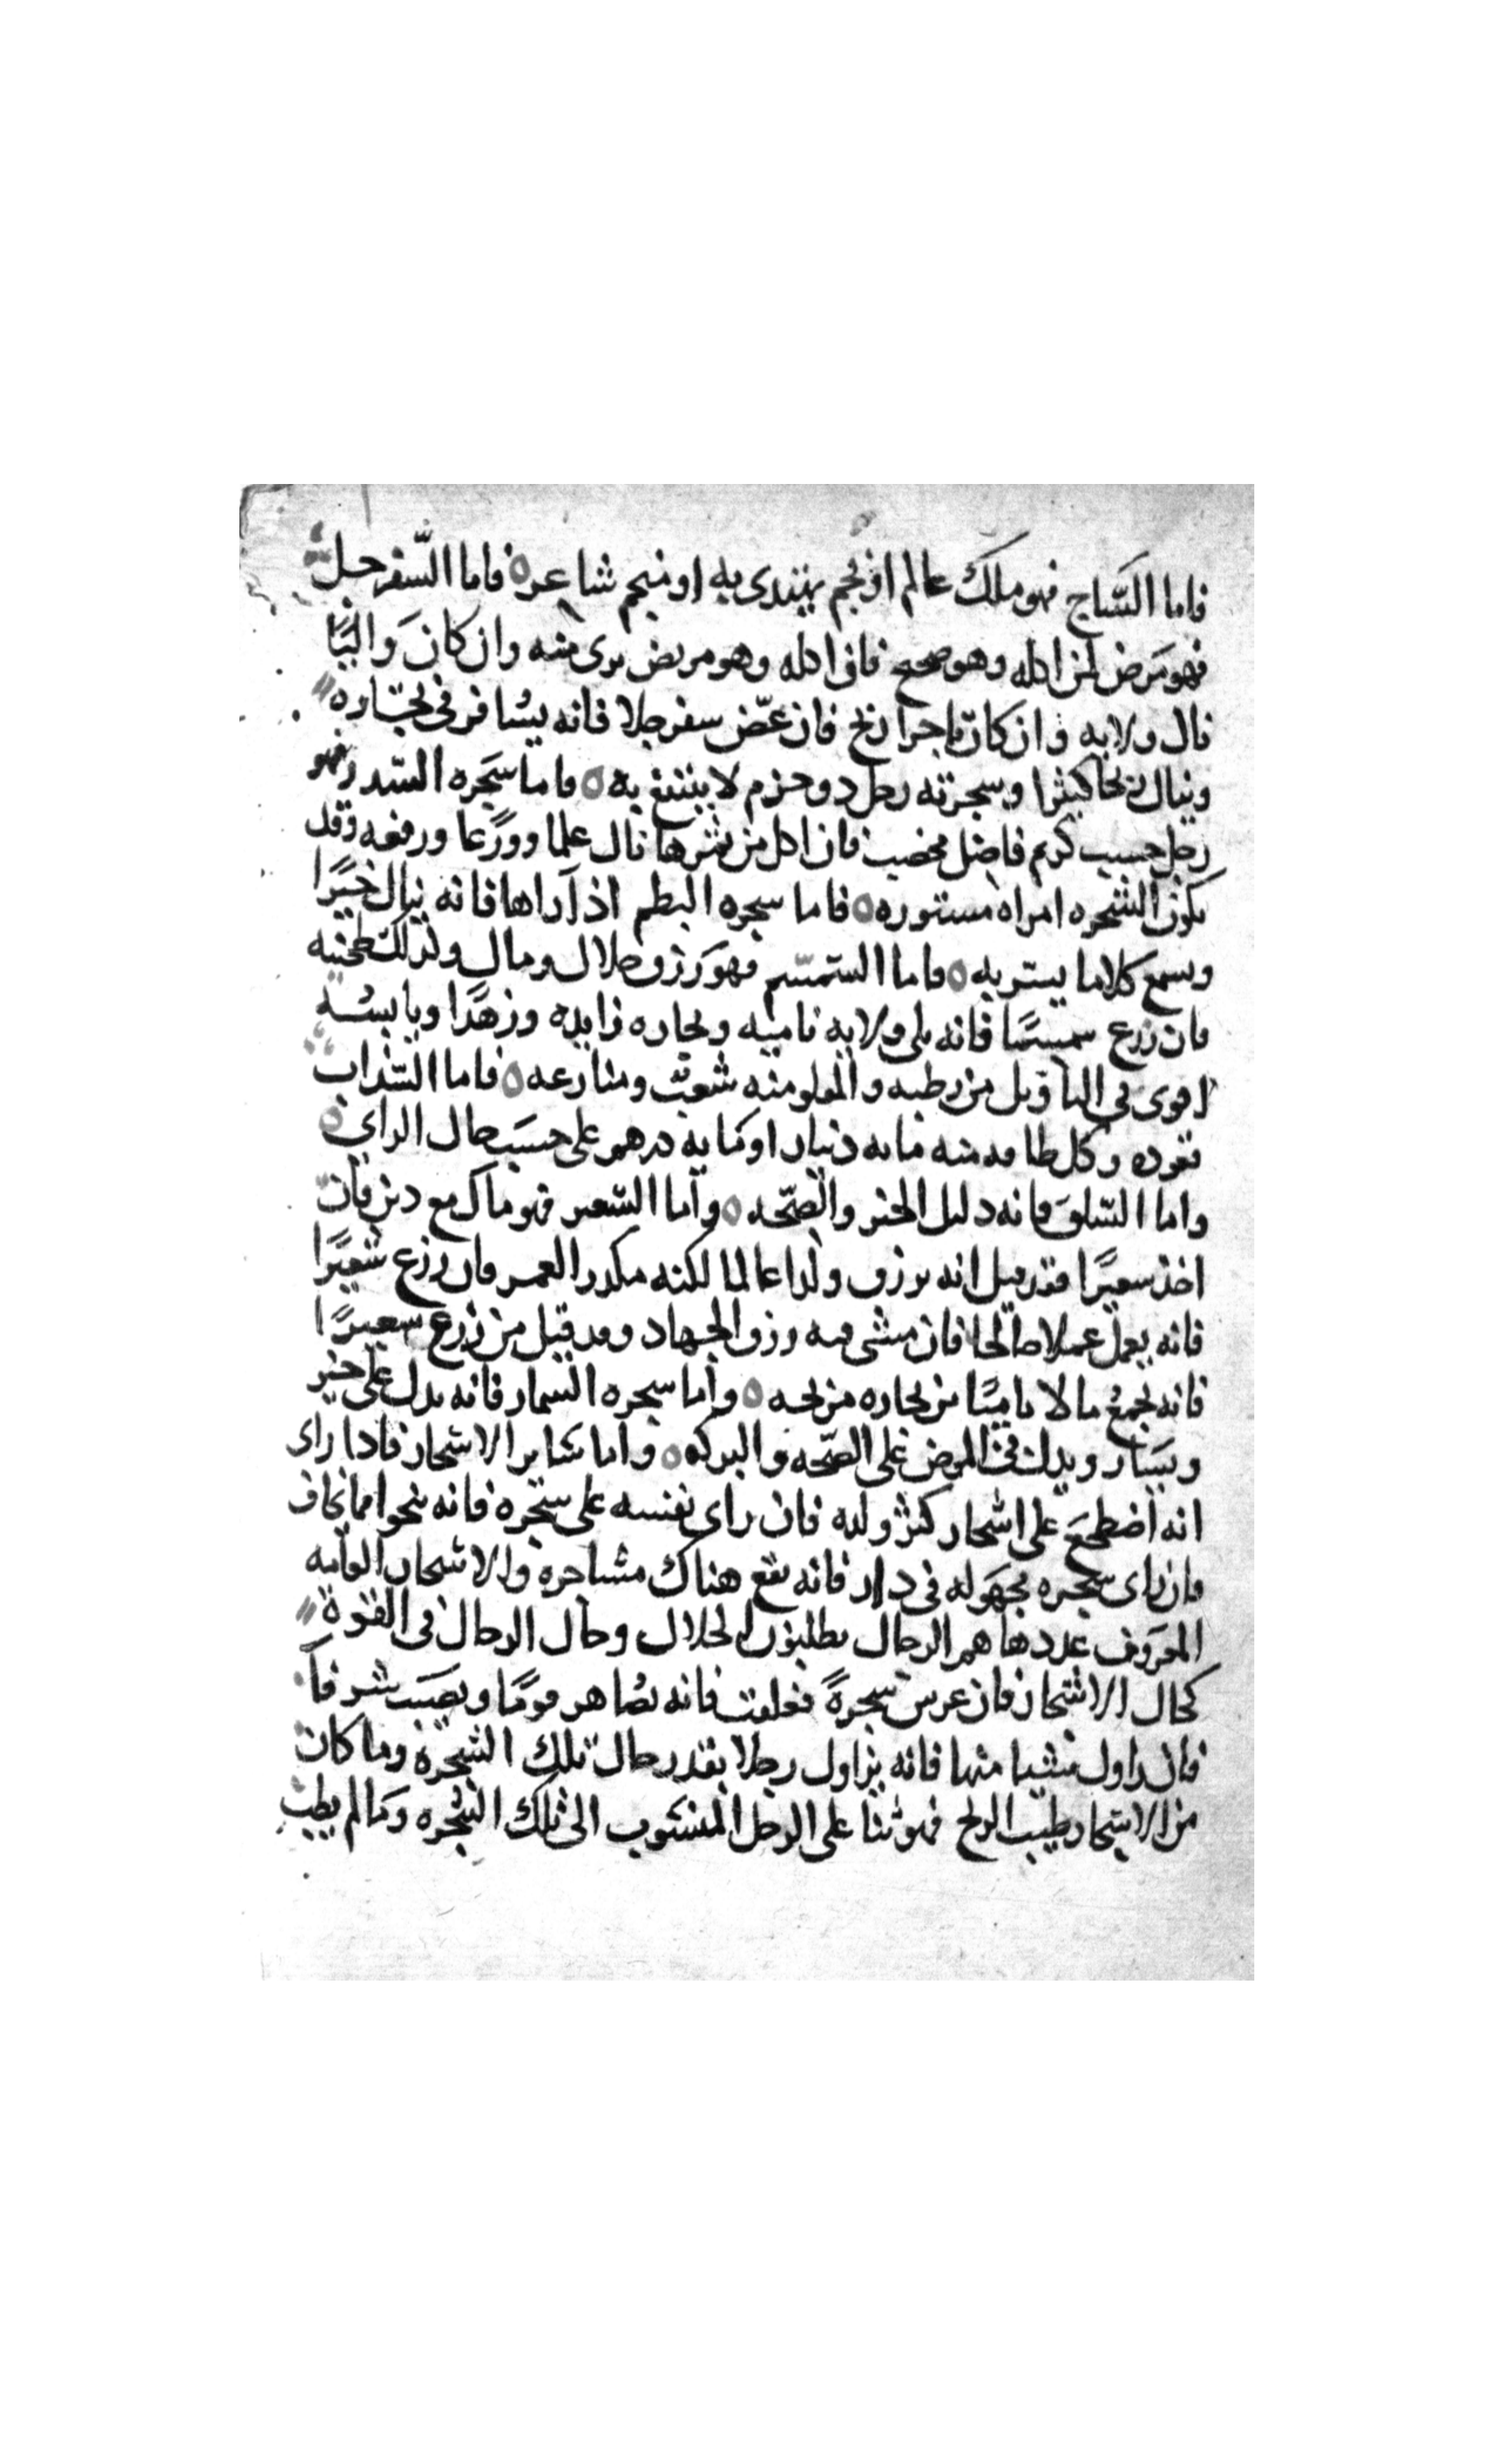 فاما الساج فهو ملك عالم او نجم يهتدى به او منجم شاعر ه فاما السفرجل
فهو مرض لمن اكله وهو صحيح فان اكله وهو مريض برى منه وان كان واليًا
نال ولايه وان كان تاجرا ربح فان عصّر سفرجلا فانه يسافر فى تجاره
وينال ربحا كثيرا وشجرته رجل ذو حزم لا ينتفع به ه فاما شجره السدر فهو
رجل حسيب كريم فاضل مخصب فان اكل من ثمرها نال علما وورعا ورفعه وقد
تكون الشجره امراه مستوره ه فاما شجره البطم اذا راها فانه ينال خيرًا
ويسمع كلاما يستر به ه فاما السمسم فهو رزق حلال ومال وكذلك طحنيه
فان زرع سمسمًا فانه يلى ولايه ناميه وتجاره زايده وزهدًا ويابسه
اقوى فى التاويل من رطبه والمقلو منه شعب ومنازعه ه فاما السذاب
فقوه وكل طاقه منه مايه دينار او مايه درهم على حسب حال الراي ه
واما السلق فانه دليل الخير والصحه ه واما الشعير فهو مال مع دين فان
اخذ شعيرًا فقد قيل انه يرزق ولدا عالما لكنه مكدر العمر فان زرع شعيرًا
فانه يعمل عملا صالحا فان مشى فيه رزق الجهاد وقد قيل من زرع شعيرًا
فانه يجمع مالا ناميًا من تجاره مربحه ه واما شجره السمار فانه يدل على خير
ويسار ويدل فى المرض على الصحه والبركه ه واما ساير الاشجار فاذا راى
انه اضطجع على اشجار كثر ولده فان راى نفسه على شجره فانه ينجو امما يخاف
فان راى شجره مجهوله فى دار فانه يقع هناك مشاجره والاشجار القايمه
المعروف عددها هم الرجال يطلبون الحلال وحال الرجال فى القوة
كحال الاشجار فان غرس شجرةً فعلقت فانه يصاهر قومًا ويصيب شرفًا
فان زاول شيا منها فانه يزاول رجلا بقدر حال تلك الشجره وما كان
من الاشجار طيب الريح فهو ثنا على الرجل المنسوب الى تلك الشجره وما لم يطب